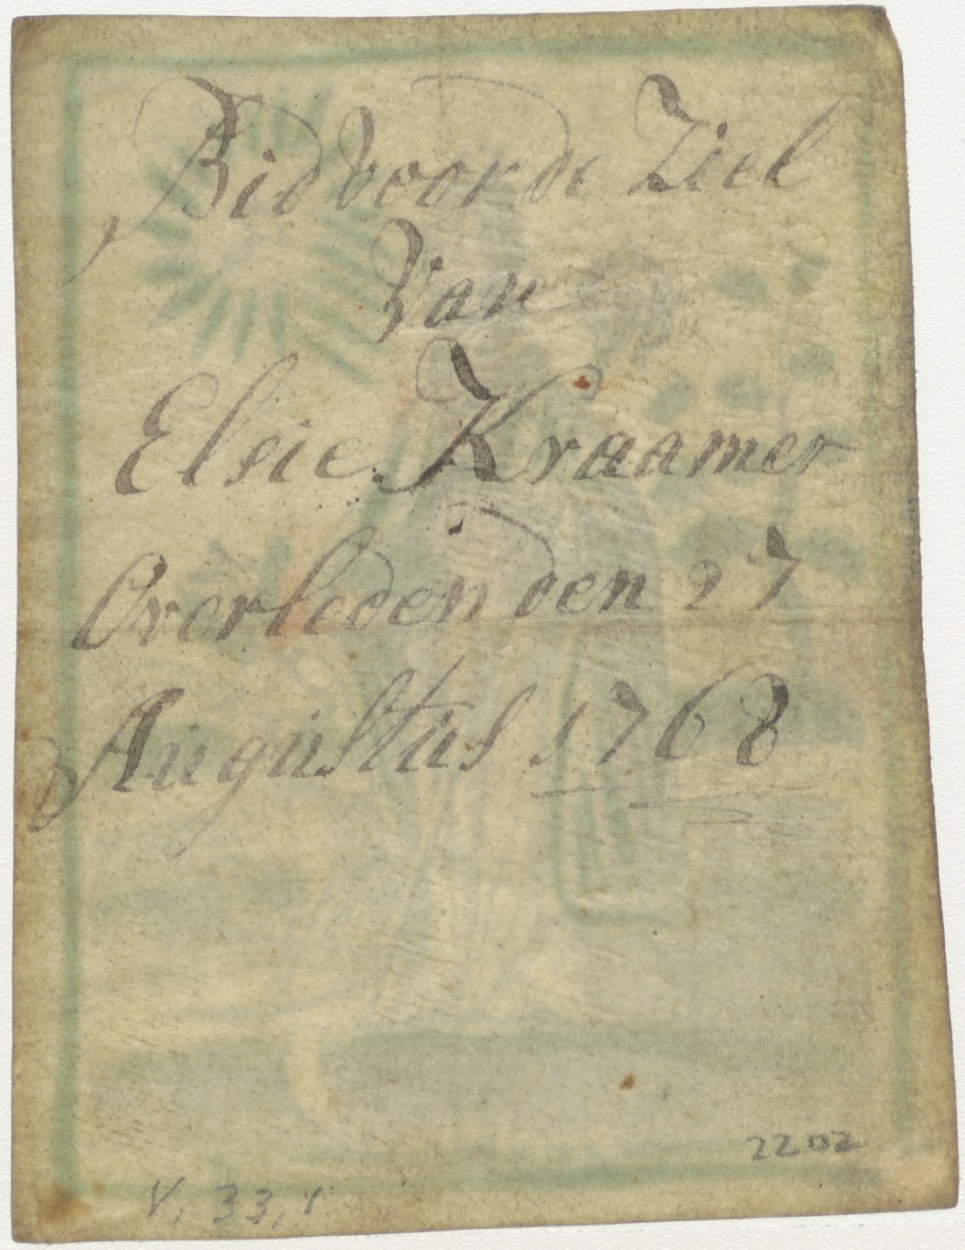 Bid voor de Ziel
Van
Elsie Kraamer
Overleden den 27
Augustus 1768
2202
V, 33, 1